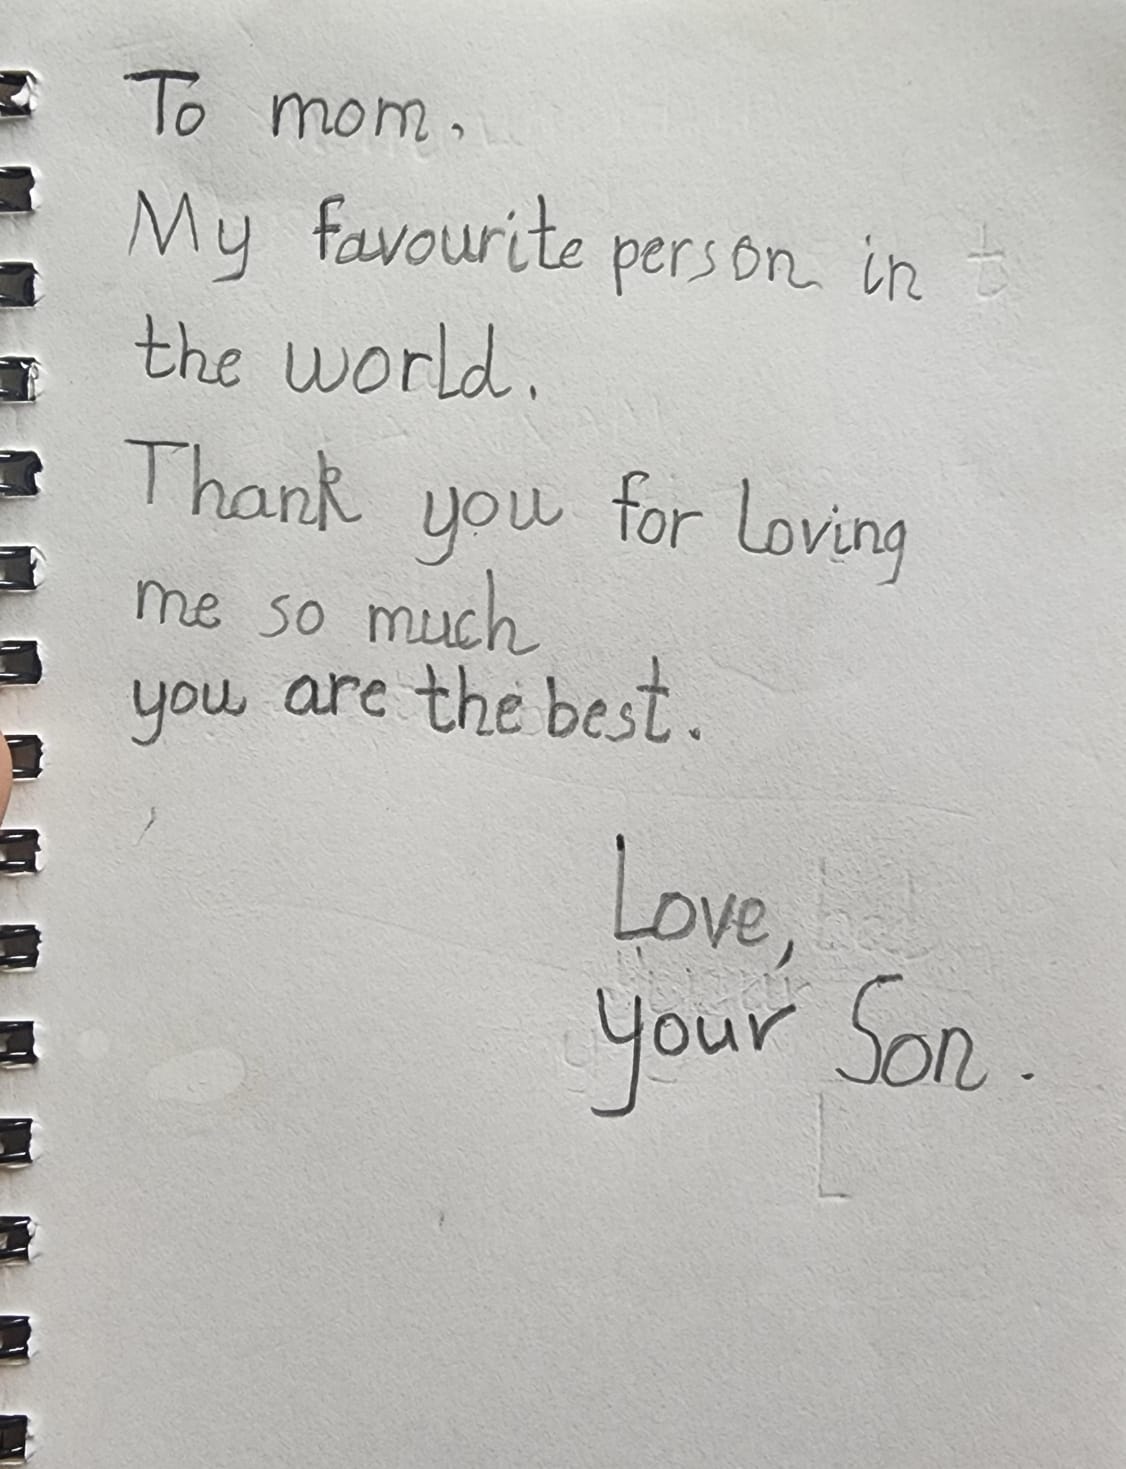 To mom,
My favourite person in
the world.
Thank you for Loving
me so much
you are the best.
Love,
your Son.